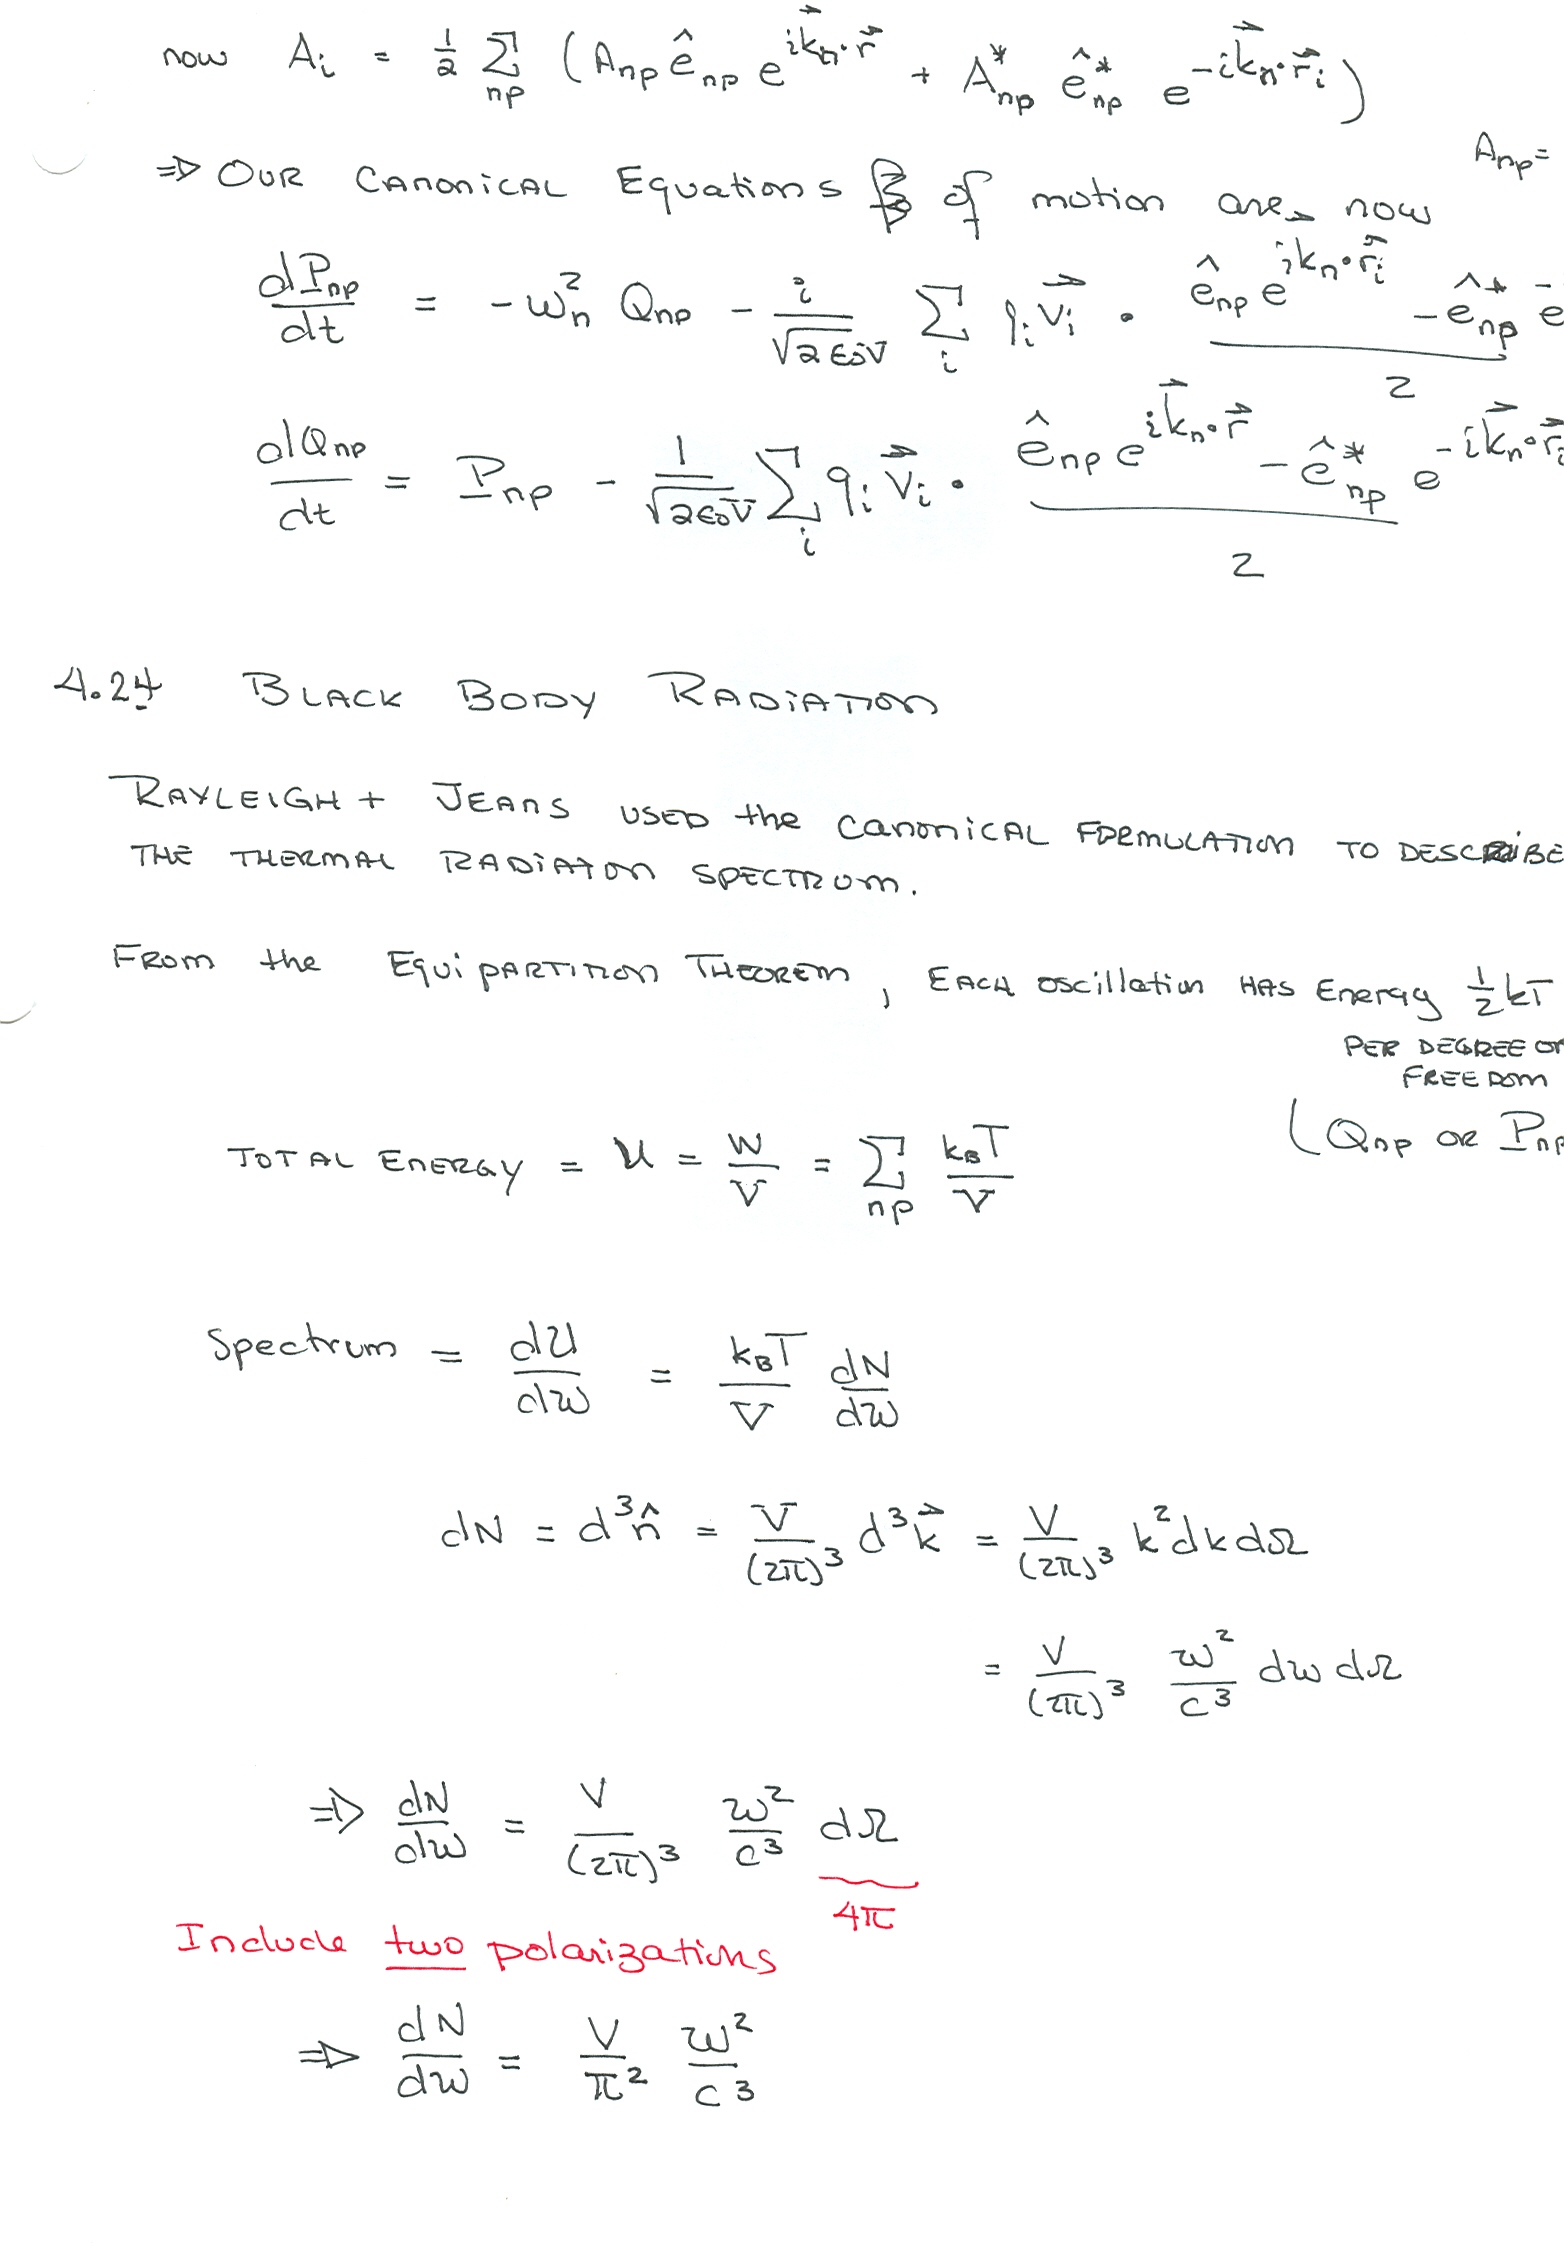 now A_i = 1/2 Σ_np (A_np ê_np e^{i k⃗_n·r⃗} + A*_np ê*_np e^{-i k⃗_n·r⃗_i})
A_np =
⇒ OUR CANONICAL Equations of motion are now
dP_np/dt = -ω_n^2 Q_np - i/√(2ε_0V) Σ_i q_i v⃗_i · (ê_np e^{i k_n·r⃗_i} - ê*_np e^-)/2
dQ_np/dt = P_np - 1/√(2ε_0V) Σ_i q_i v⃗_i · (ê_np e^{i k⃗_n·r⃗} - ê*_np e^{-i k⃗_n·r⃗_i})/2
4.24 BLACK BODY RADIATION
RAYLEIGH + JEANS USED the CANONICAL FORMULATION TO DESCRIBE
THE THERMAL RADIATON SPECTRUM.
FROM the EquiPARTITION THEOREM, EACH oscillation HAS Energy 1/2 kT
PER DEGREE OF
FREEDOM
(Q_np OR P_np
TOTAL ENERGY = U = W/V = Σ_np k_BT/V
Spectrum = dU/dω = k_BT/V dN/dω
dN = d^3n̂ = V/(2π)^3 d^3k⃗ = V/(2π)^3 k^2dkdΩ
= V/(2π)^3 ω^2/c^3 dω dΩ
⇒ dN/dω = V/(2π)^3 ω^2/c^3 dΩ
4π
Include two polarizations
⇒ dN/dω = V/π^2 ω^2/c^3